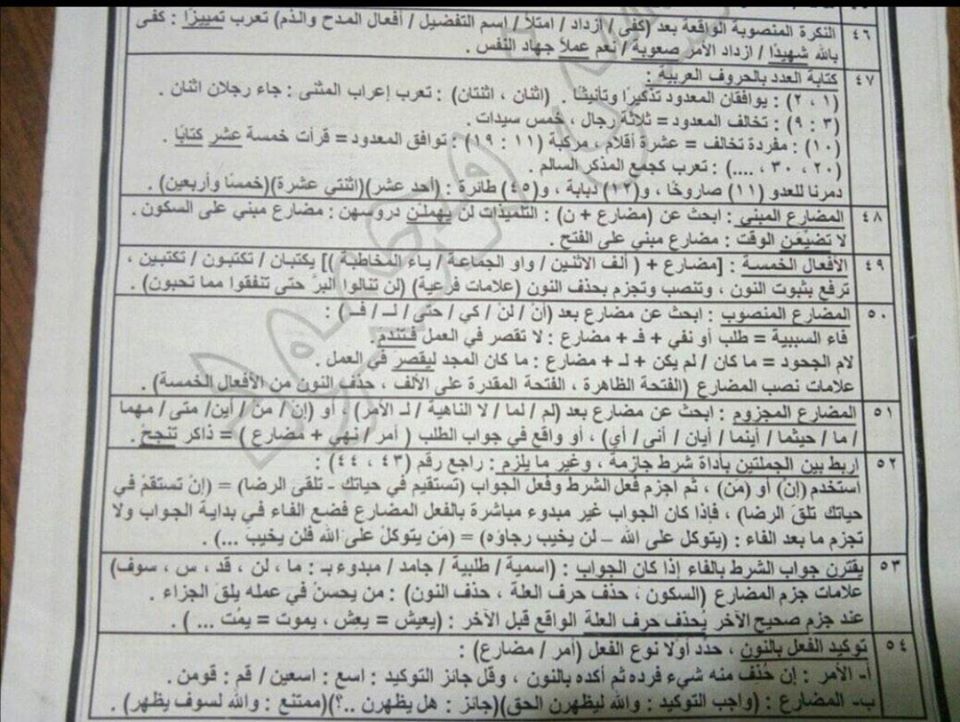 ٤٦ النكرة المنصوبة الواقعة بعد (كفى / ازداد / امتلأ / إسم التفضيل / أفعال المدح والذم) تعرب تمييزًا : كفى
بالله شهيدًا / ازداد الأمر صعوبة / نعم عملاً جهاد النفس .
٤٧ كتابة العدد بالحروف العربية :
(١ ، ٢) : يوافقان المعدود تذكيرًا وتأنيثًا . (اثنان ، اثنتان) : تعرب إعراب المثنى : جاء رجلان اثنان .
(٣ : ٩) : تخالف المعدود = ثلاثة رجال ، خمس سيدات .
(١٠) : مفردة تخالف = عشرة أقلام ، مركبة (١١ : ١٩) : توافق المعدود = قرأت خمسة عشر كتابًا .
(٢٠ ، ٣٠ ، ....) : تعرب كجمع المذكر السالم .
دمرنا للعدو (١١) صاروخًا ، و(١٢) دبابة ، و(٤٥) طائرة : (أحد عشر)(اثنتي عشرة)(خمسًا وأربعين) .
٤٨ المضارع المبني : ابحث عن (مضارع + ن) : التلميذات لن يهملن دروسهن : مضارع مبني على السكون .
لا تضيّعن الوقت : مضارع مبني على الفتح .
٤٩ الأفعال الخمسة : [مضارع + ( ألف الاثنين / واو الجماعة / ياء المخاطبة )] يكتبان / تكتبون / تكتبين ،
ترفع بثبوت النون ، وتنصب وتجزم بحذف النون (علامات فرعية) (لن تنالوا البرَّ حتى تنفقوا مما تحبون) .
٥٠ المضارع المنصوب : ابحث عن مضارع بعد (أنْ / لنْ / كي / حتى / لـ / فـ) :
فاء السببية = طلب أو نفي + فـ + مضارع : لا تقصر في العمل فتندم.
لام الجحود = ما كان / لم يكن + لـ + مضارع : ما كان المجد ليقصرَ في العمل .
علامات نصب المضارع (الفتحة الظاهرة ، الفتحة المقدرة على الألف ، حذف النون من الأفعال الخمسة) .
٥١ المضارع المجزوم : ابحث عن مضارع بعد (لم / لما / لا الناهية / لـ الأمر) ، أو (إنْ / منْ / أين/ متى / مهما
/ ما / حيثما / أينما / أيان / أنى / أي) ، أو واقع في جواب الطلب ( أمر / نهي + مضارع ) = ذاكر تنجحْ .
٥٢ اربط بين الجملتين بأداة شرط جازمة ، وغير ما يلزم : راجع رقم (٤٣ ، ٤٤) :
استخدم (إنْ) أو (مَن) ، ثم اجزم فعل الشرط وفعل الجواب (تستقيم في حياتك - تلقى الرضا) = (إن تستقمْ في
حياتك تلقَ الرضا) ، فإذا كان الجواب غير مبدوء مباشرة بالفعل المضارع فضع الفاء في بداية الجواب ولا
تجزم ما بعد الفاء : (يتوكل على الله – لن يخيب رجاؤه) = (مَن يتوكلْ على الله فلن يخيبَ ...) .
٥٣ يقترن جواب الشرط بالفاء إذا كان الجواب : (اسمية / طلبية / جامد / مبدوء بـ : ما ، لن ، قد ، س ، سوف)
علامات جزم المضارع (السكون ، حذف حرف العلة ، حذف النون) : من يحسنْ في عمله يلقَ الجزاء .
عند جزم صحيح الآخر يُحذف حرف العلة الواقع قبل الآخر : (يعيش = يعِش ، يموت = يمُت ... ) .
٥٤ توكيد الفعل بالنون ، حدد أولا نوع الفعل (أمر / مضارع) :
أ- الأمر : إن حُذف منه شيء فرده ثم أكده بالنون ، وقل جائز التوكيد : اسع : اسعين / قم : قومن .
ب- المضارع : (واجب التوكيد : والله ليظهرن الحق)(جائز : هل يظهرن ..؟)(ممتنع : والله لسوف يظهر) .